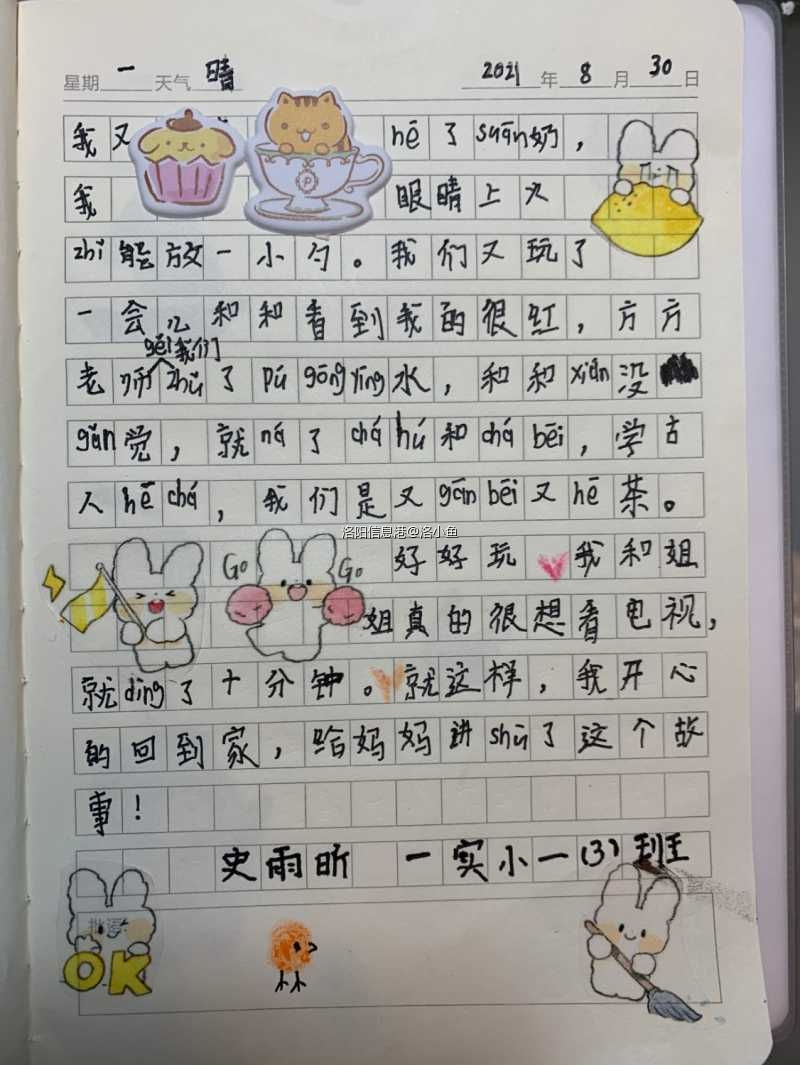 星期一 天气晴 2021年8月30日
我又 hē了suān奶，
我 眼睛上火
zhǐ能放一小勺。我们又玩了
一会儿和和看到我的很红，方方
gěi我们
老师zhǔ了pú gōng yīng水，和和xián没
gǎn觉，就ná了chá hú和chá bēi，学古
人hē chá，我们是又gān bēi又hē茶。
Go Go 好好玩 我和姐
姐真的很想看电视，
就dìng了十分钟。就这样，我开心
的回到家，给妈妈讲shù了这个故
事！
史雨昕 一实小一(3)班
批语
OK
洛阳信息港@洛小鱼